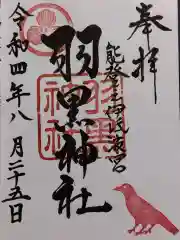 奉拝
能登三
羽黒神社
令和四年八月二十五日
羽黒
神社